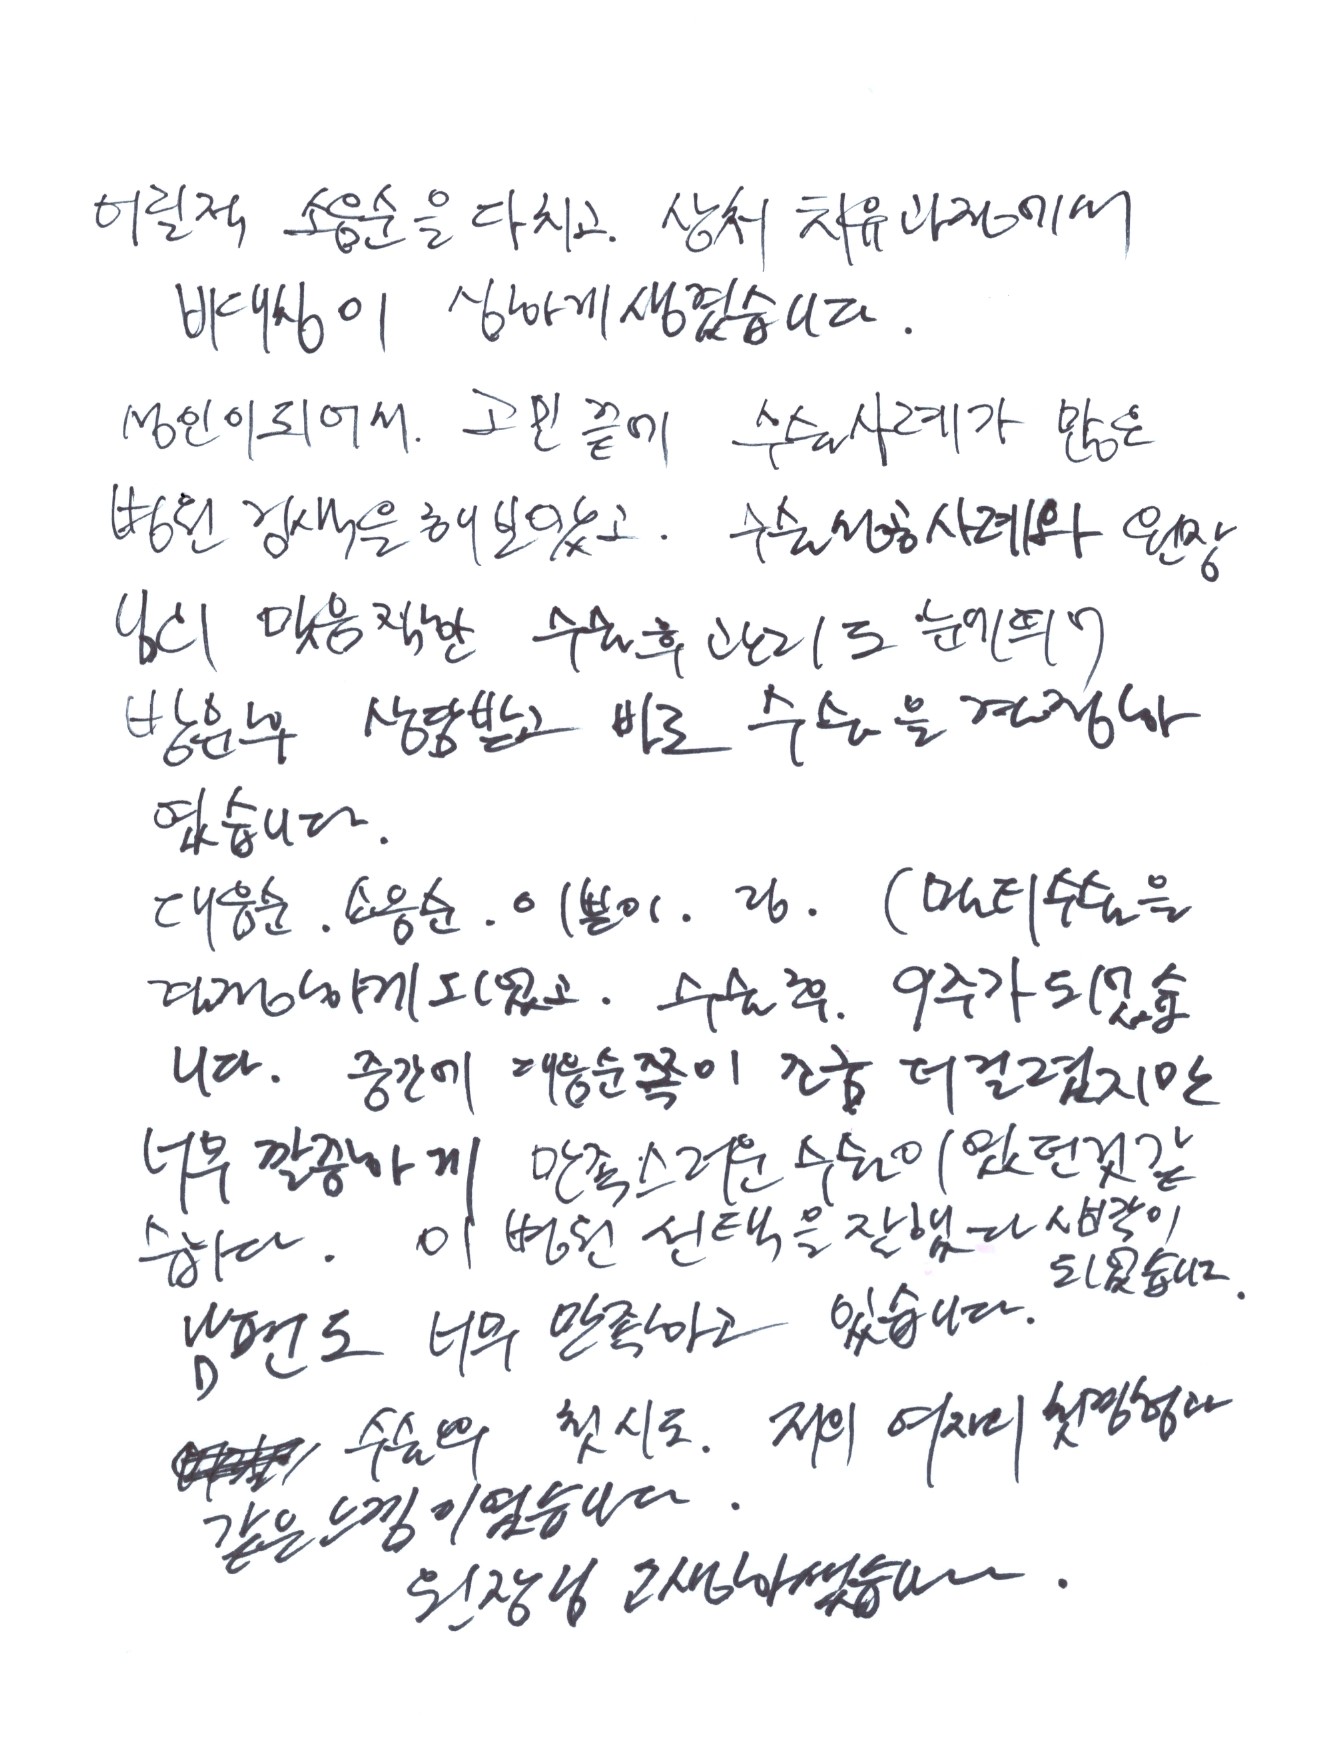 어릴적 소음순을 다치고. 상처 치유과정에서
비대칭이 심하게 생겼습니다.
성인이되어서. 고민 끝에 수술사례가 많은
병원 검색을 해보았고. 수술성공사례와 원장
님의 꼼꼼한 수술후 관리도 눈에띄어
방문후 상담받고 바로 수술을 결정하
였습니다.
대음순. 소음순. 이쁜이. 링. (멀티수술을
결정하게되었고. 수술 후. 9주가되었습
니다. 중간에 대음순쪽이 조금 더걸렸지만
너무 깔끔하게 만족스러운 수술이었던것같
습니다. 이 병원 선택을 잘했다 생각이
되었습니다.
남편도 너무 만족하고 있습니다.
수술의 첫시도. 저의 여자의 첫경험과
같은느낌이였습니다.
원장님 고생하셨습니다.